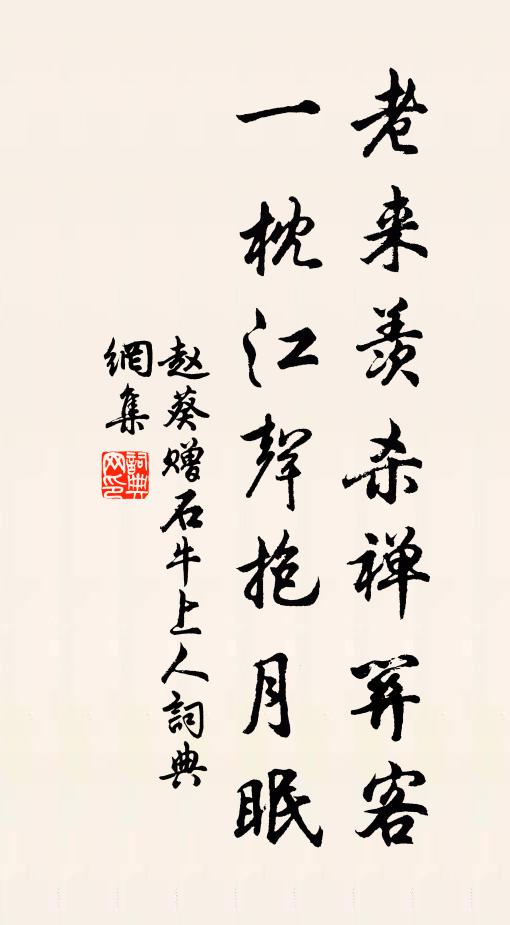 老来羨杀禅関客
一枕江聲抱月眠
赵葵赠石牛上人詞典
網集
詞典
网印